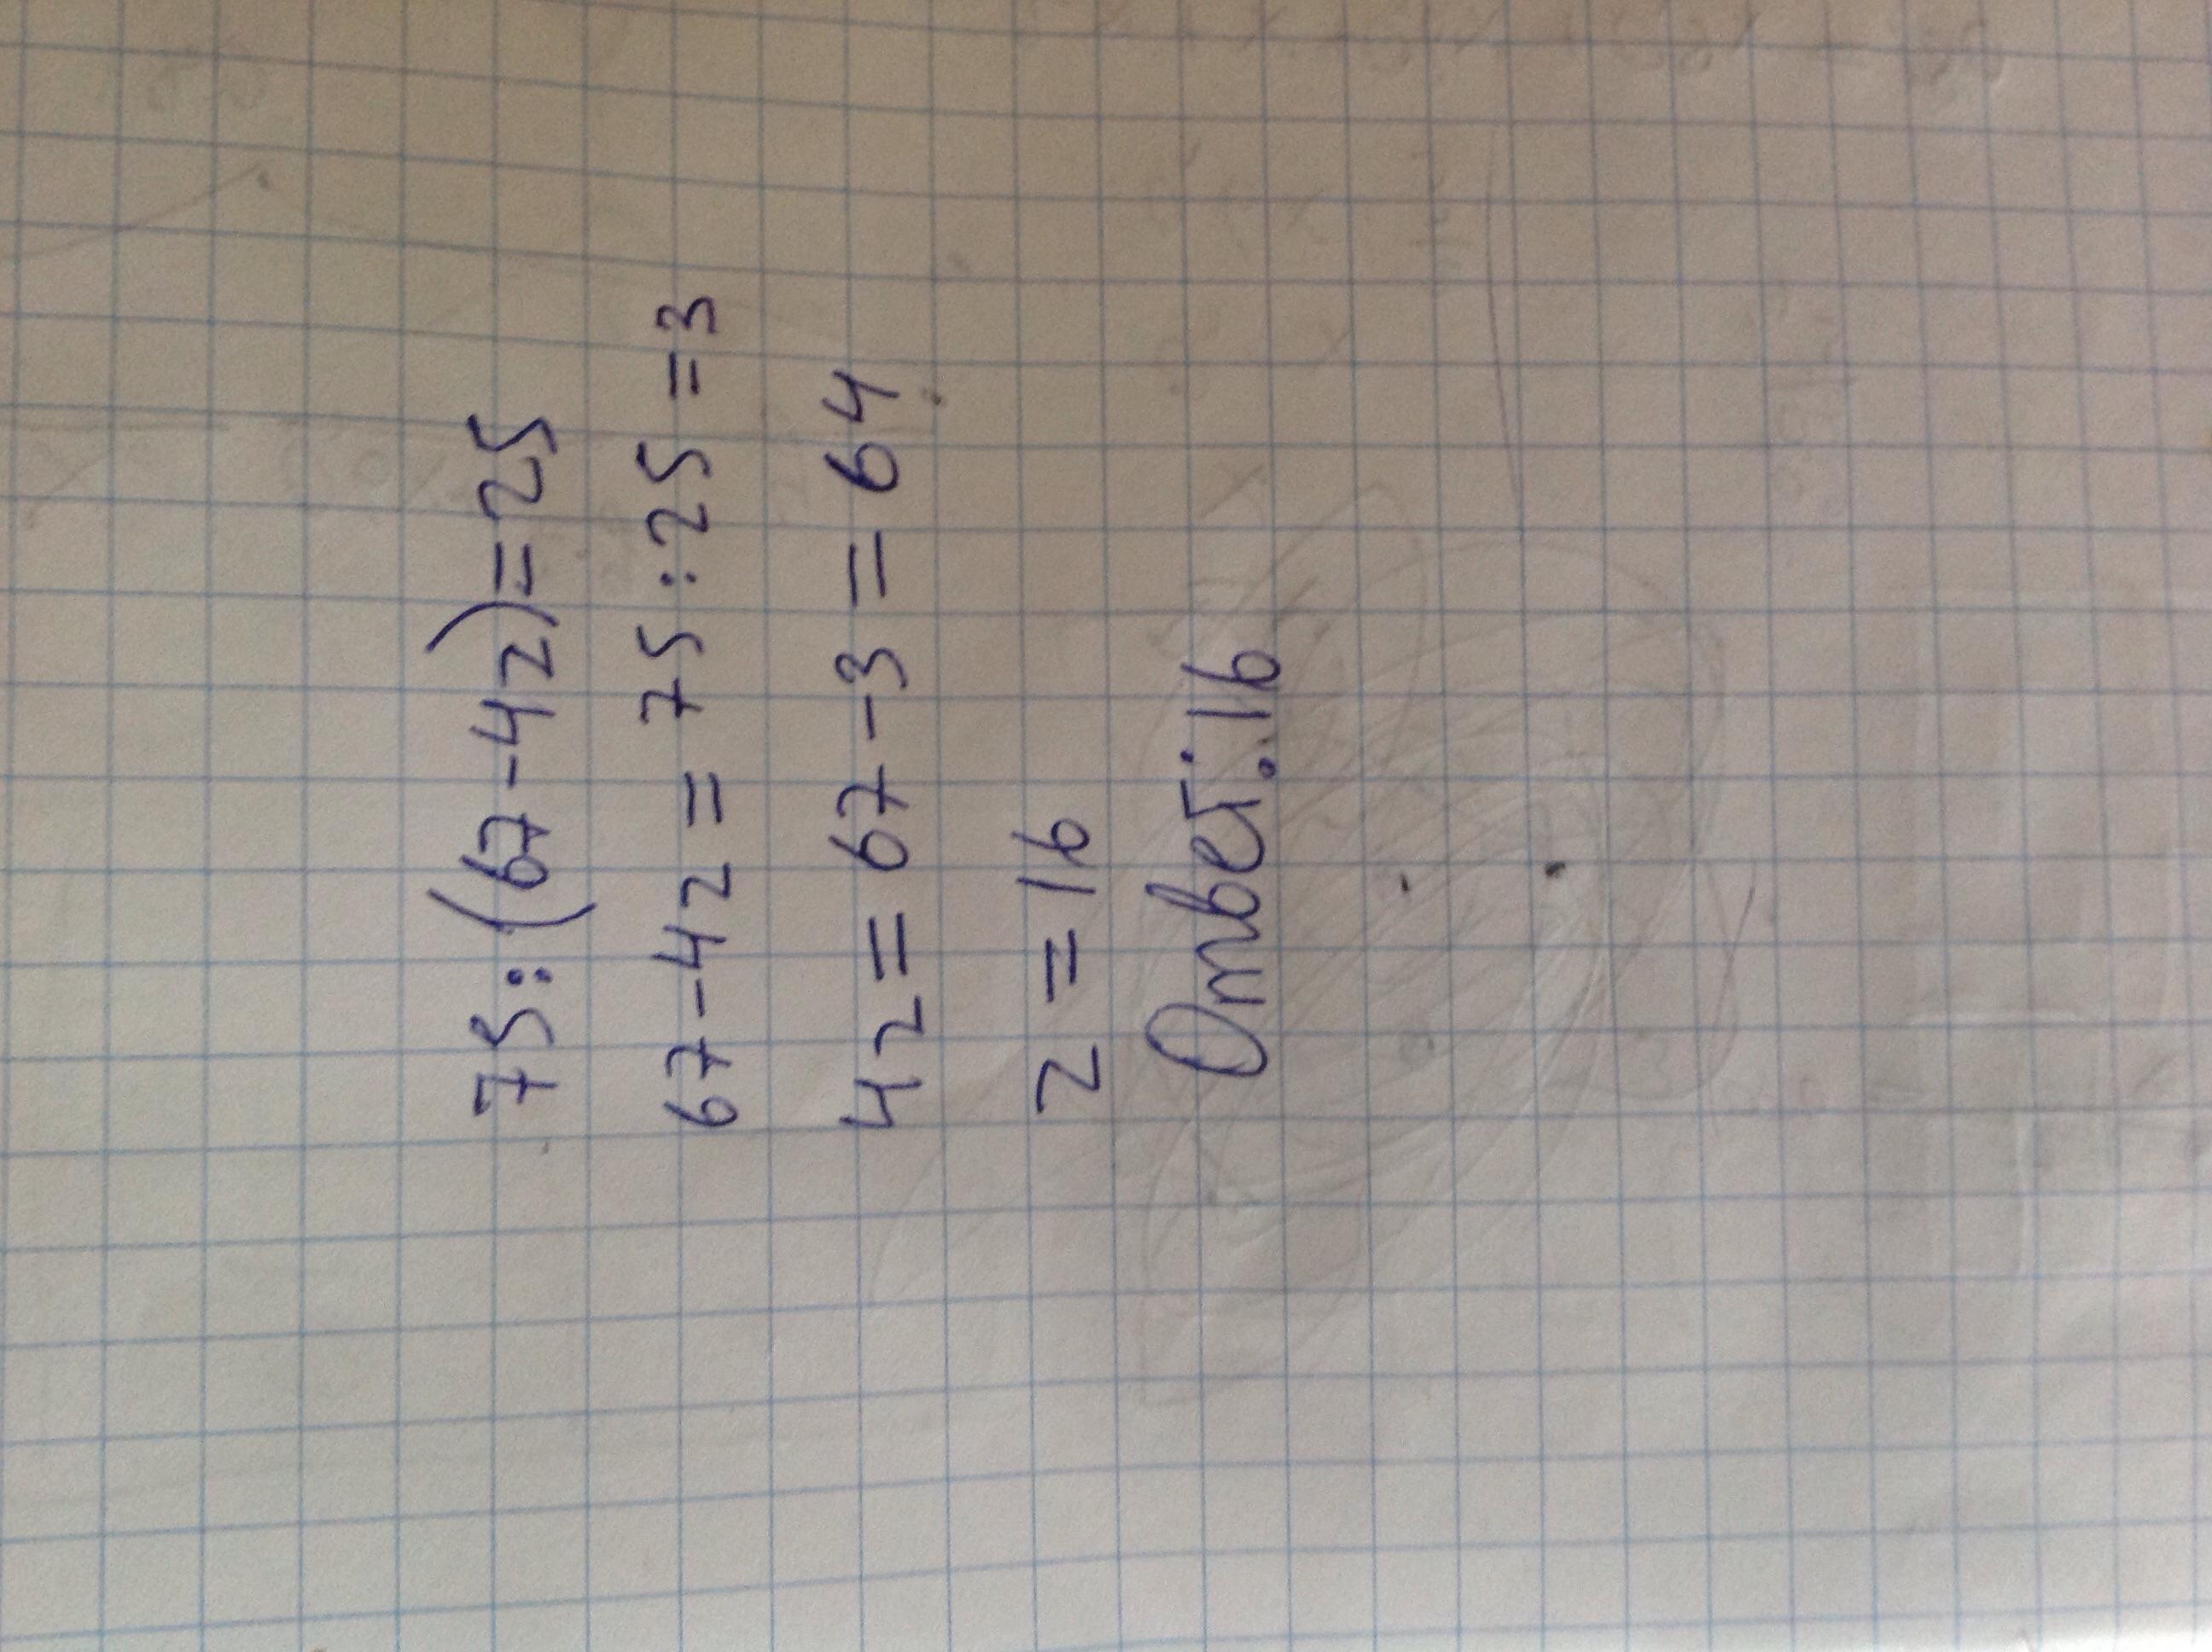 75:(67-4z)=25
67-4z = 75:25 =3
4z = 67-3 = 64
z = 16
Ответ: 16